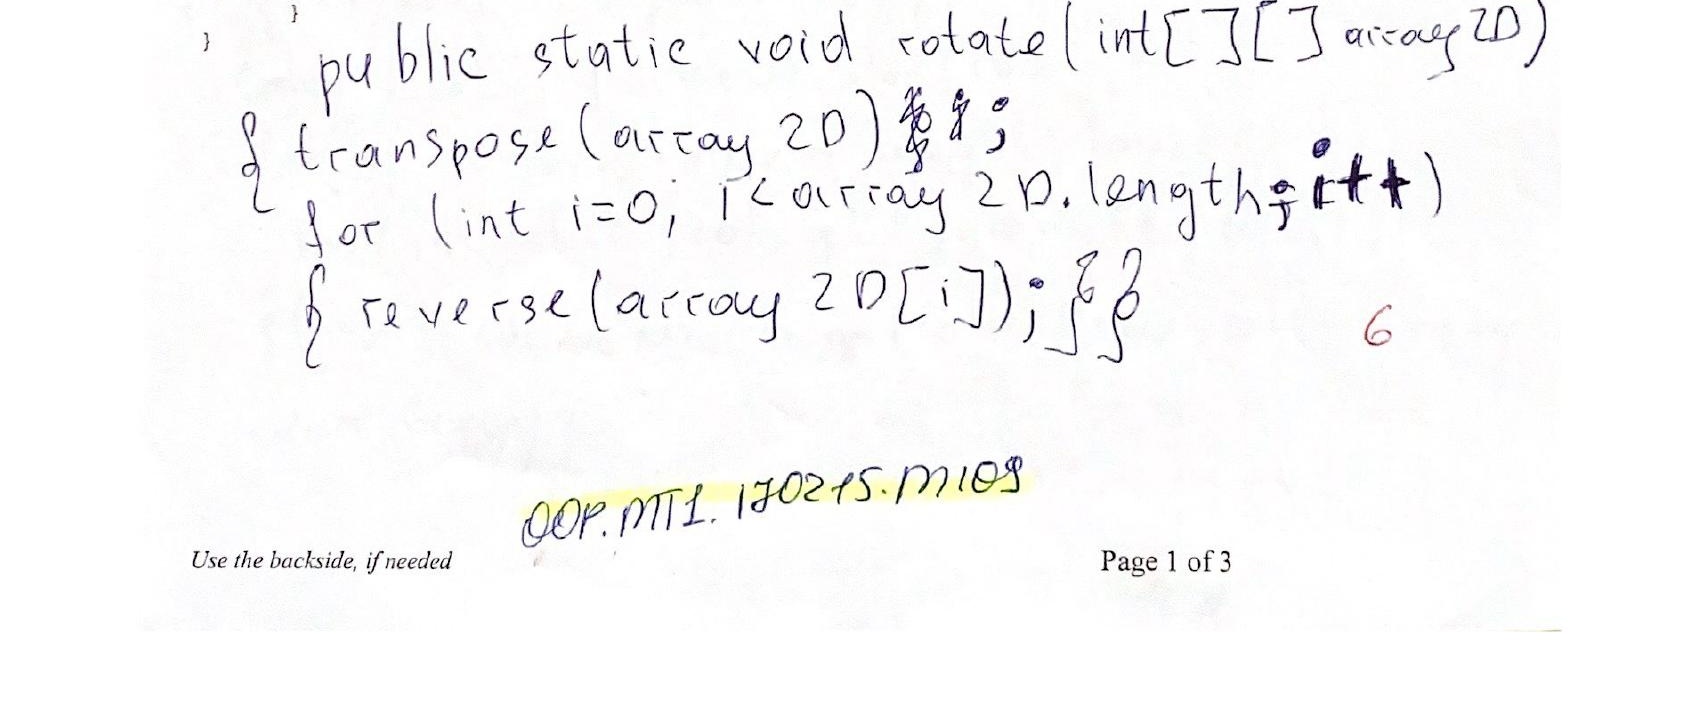 }
}
public static void rotate(int[][] array2D)
{ transpose(array 2D) ;
for (int i=0; i<array 2D.length; i++)
{ reverse(array 2D[i]); }}
6
OOP.MT1.170215.M109
Use the backside, if needed
Page 1 of 3